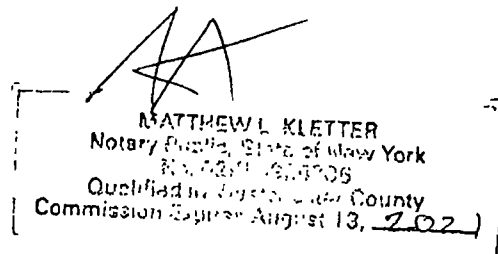 MATTHEW L KLETTER
Notary Public, State of New York
No.
Qualified in County
Commission Expires August 13, 2021